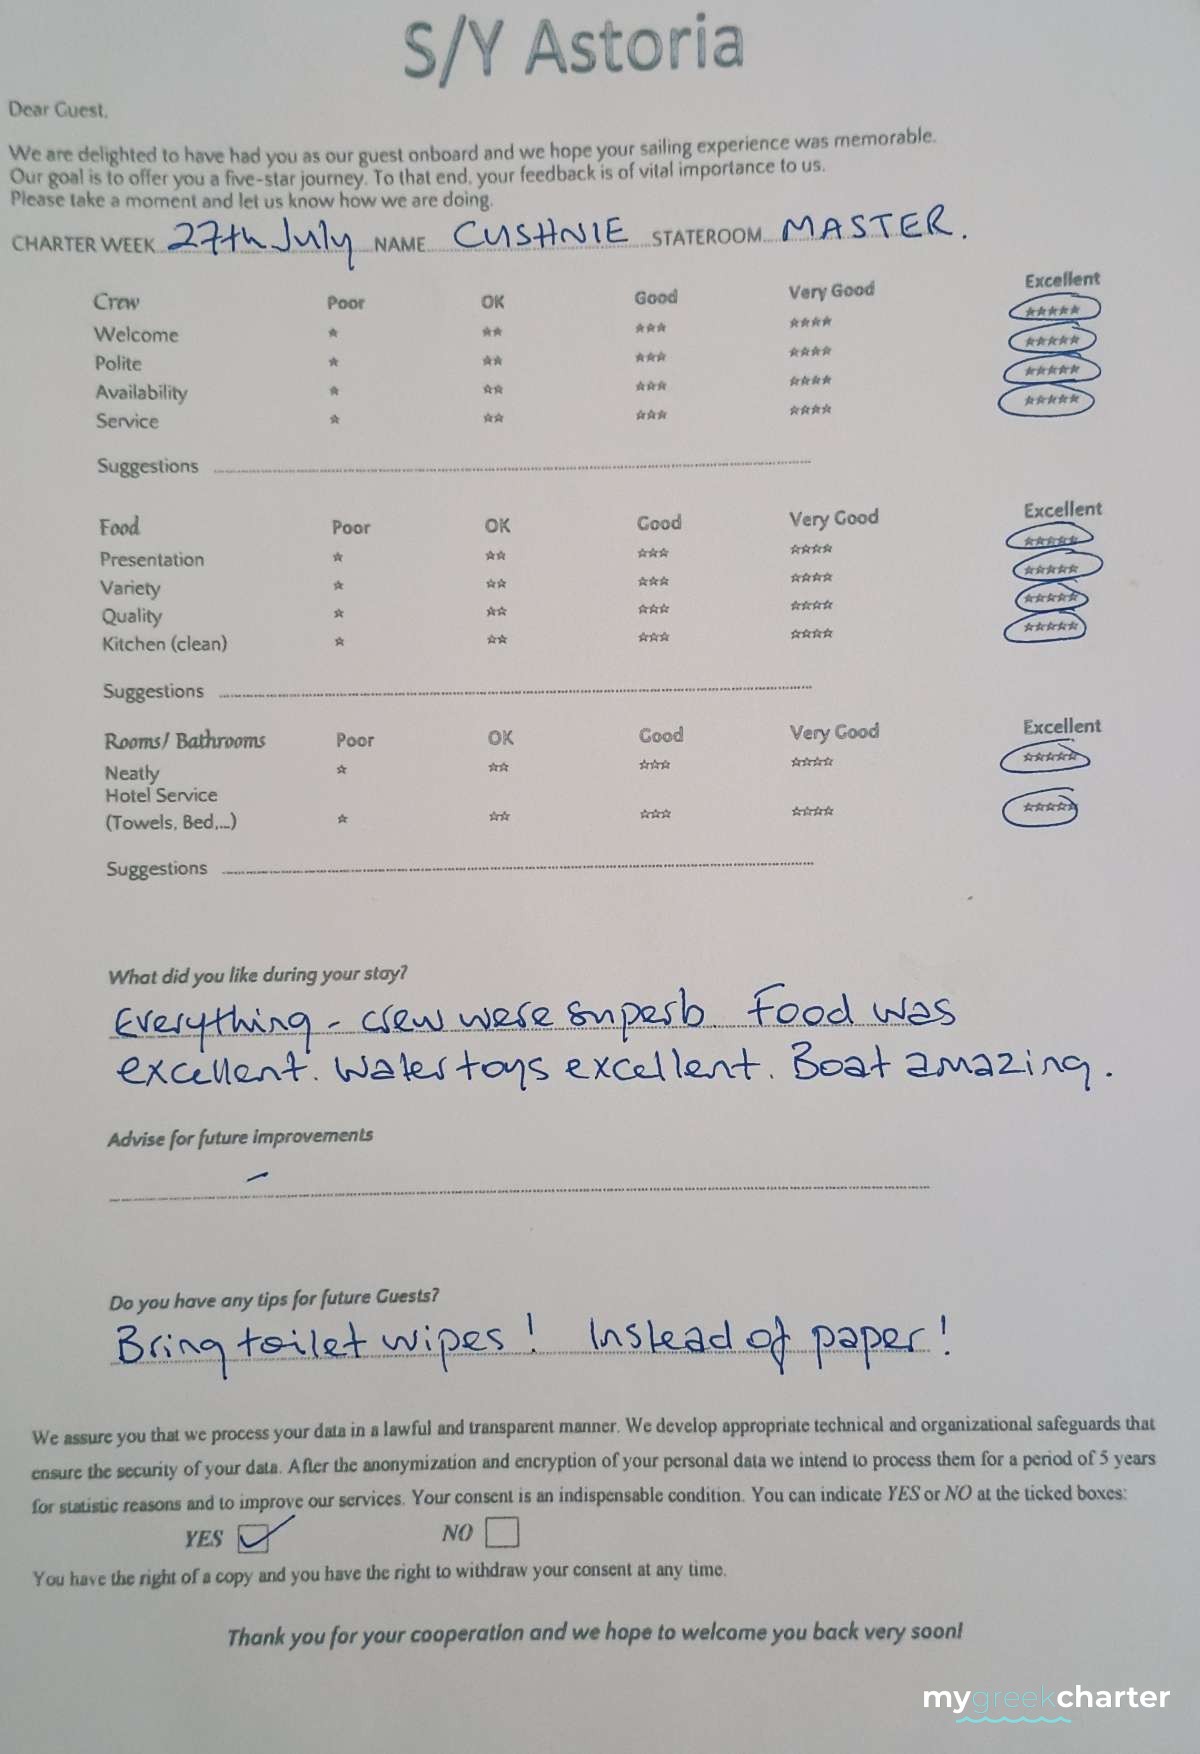 S/Y Astoria
Dear Guest,
We are delighted to have had you as our guest onboard and we hope your sailing experience was memorable.
Our goal is to offer you a five-star journey. To that end, your feedback is of vital importance to us.
Please take a moment and let us know how we are doing.
CHARTER WEEK 27th July NAME CUSHNIE STATEROOM MASTER.
Crew Poor OK Good Very Good Excellent
Welcome ☆ ☆☆ ☆☆☆ ☆☆☆☆ ☆☆☆☆☆
Polite ☆ ☆☆ ☆☆☆ ☆☆☆☆ ☆☆☆☆☆
Availability ☆ ☆☆ ☆☆☆ ☆☆☆☆ ☆☆☆☆☆
Service ☆ ☆☆ ☆☆☆ ☆☆☆☆ ☆☆☆☆☆
Suggestions
Food Poor OK Good Very Good Excellent
Presentation ☆ ☆☆ ☆☆☆ ☆☆☆☆ ☆☆☆☆☆
Variety ☆ ☆☆ ☆☆☆ ☆☆☆☆ ☆☆☆☆☆
Quality ☆ ☆☆ ☆☆☆ ☆☆☆☆ ☆☆☆☆☆
Kitchen (clean) ☆ ☆☆ ☆☆☆ ☆☆☆☆ ☆☆☆☆☆
Suggestions
Rooms/ Bathrooms Poor OK Good Very Good Excellent
Neatly ☆ ☆☆ ☆☆☆ ☆☆☆☆ ☆☆☆☆☆
Hotel Service
(Towels, Bed,...) ☆ ☆☆ ☆☆☆ ☆☆☆☆ ☆☆☆☆☆
Suggestions
What did you like during your stay?
Everything - crew were superb. Food was
excellent. Water toys excellent. Boat amazing.
Advise for future improvements
-
Do you have any tips for future Guests?
Bring toilet wipes! Instead of paper!
We assure you that we process your data in a lawful and transparent manner. We develop appropriate technical and organizational safeguards that
ensure the security of your data. After the anonymization and encryption of your personal data we intend to process them for a period of 5 years
for statistic reasons and to improve our services. Your consent is an indispensable condition. You can indicate YES or NO at the ticked boxes:
YES ☑ NO ☐
You have the right of a copy and you have the right to withdraw your consent at any time.
Thank you for your cooperation and we hope to welcome you back very soon!
mygreekcharter